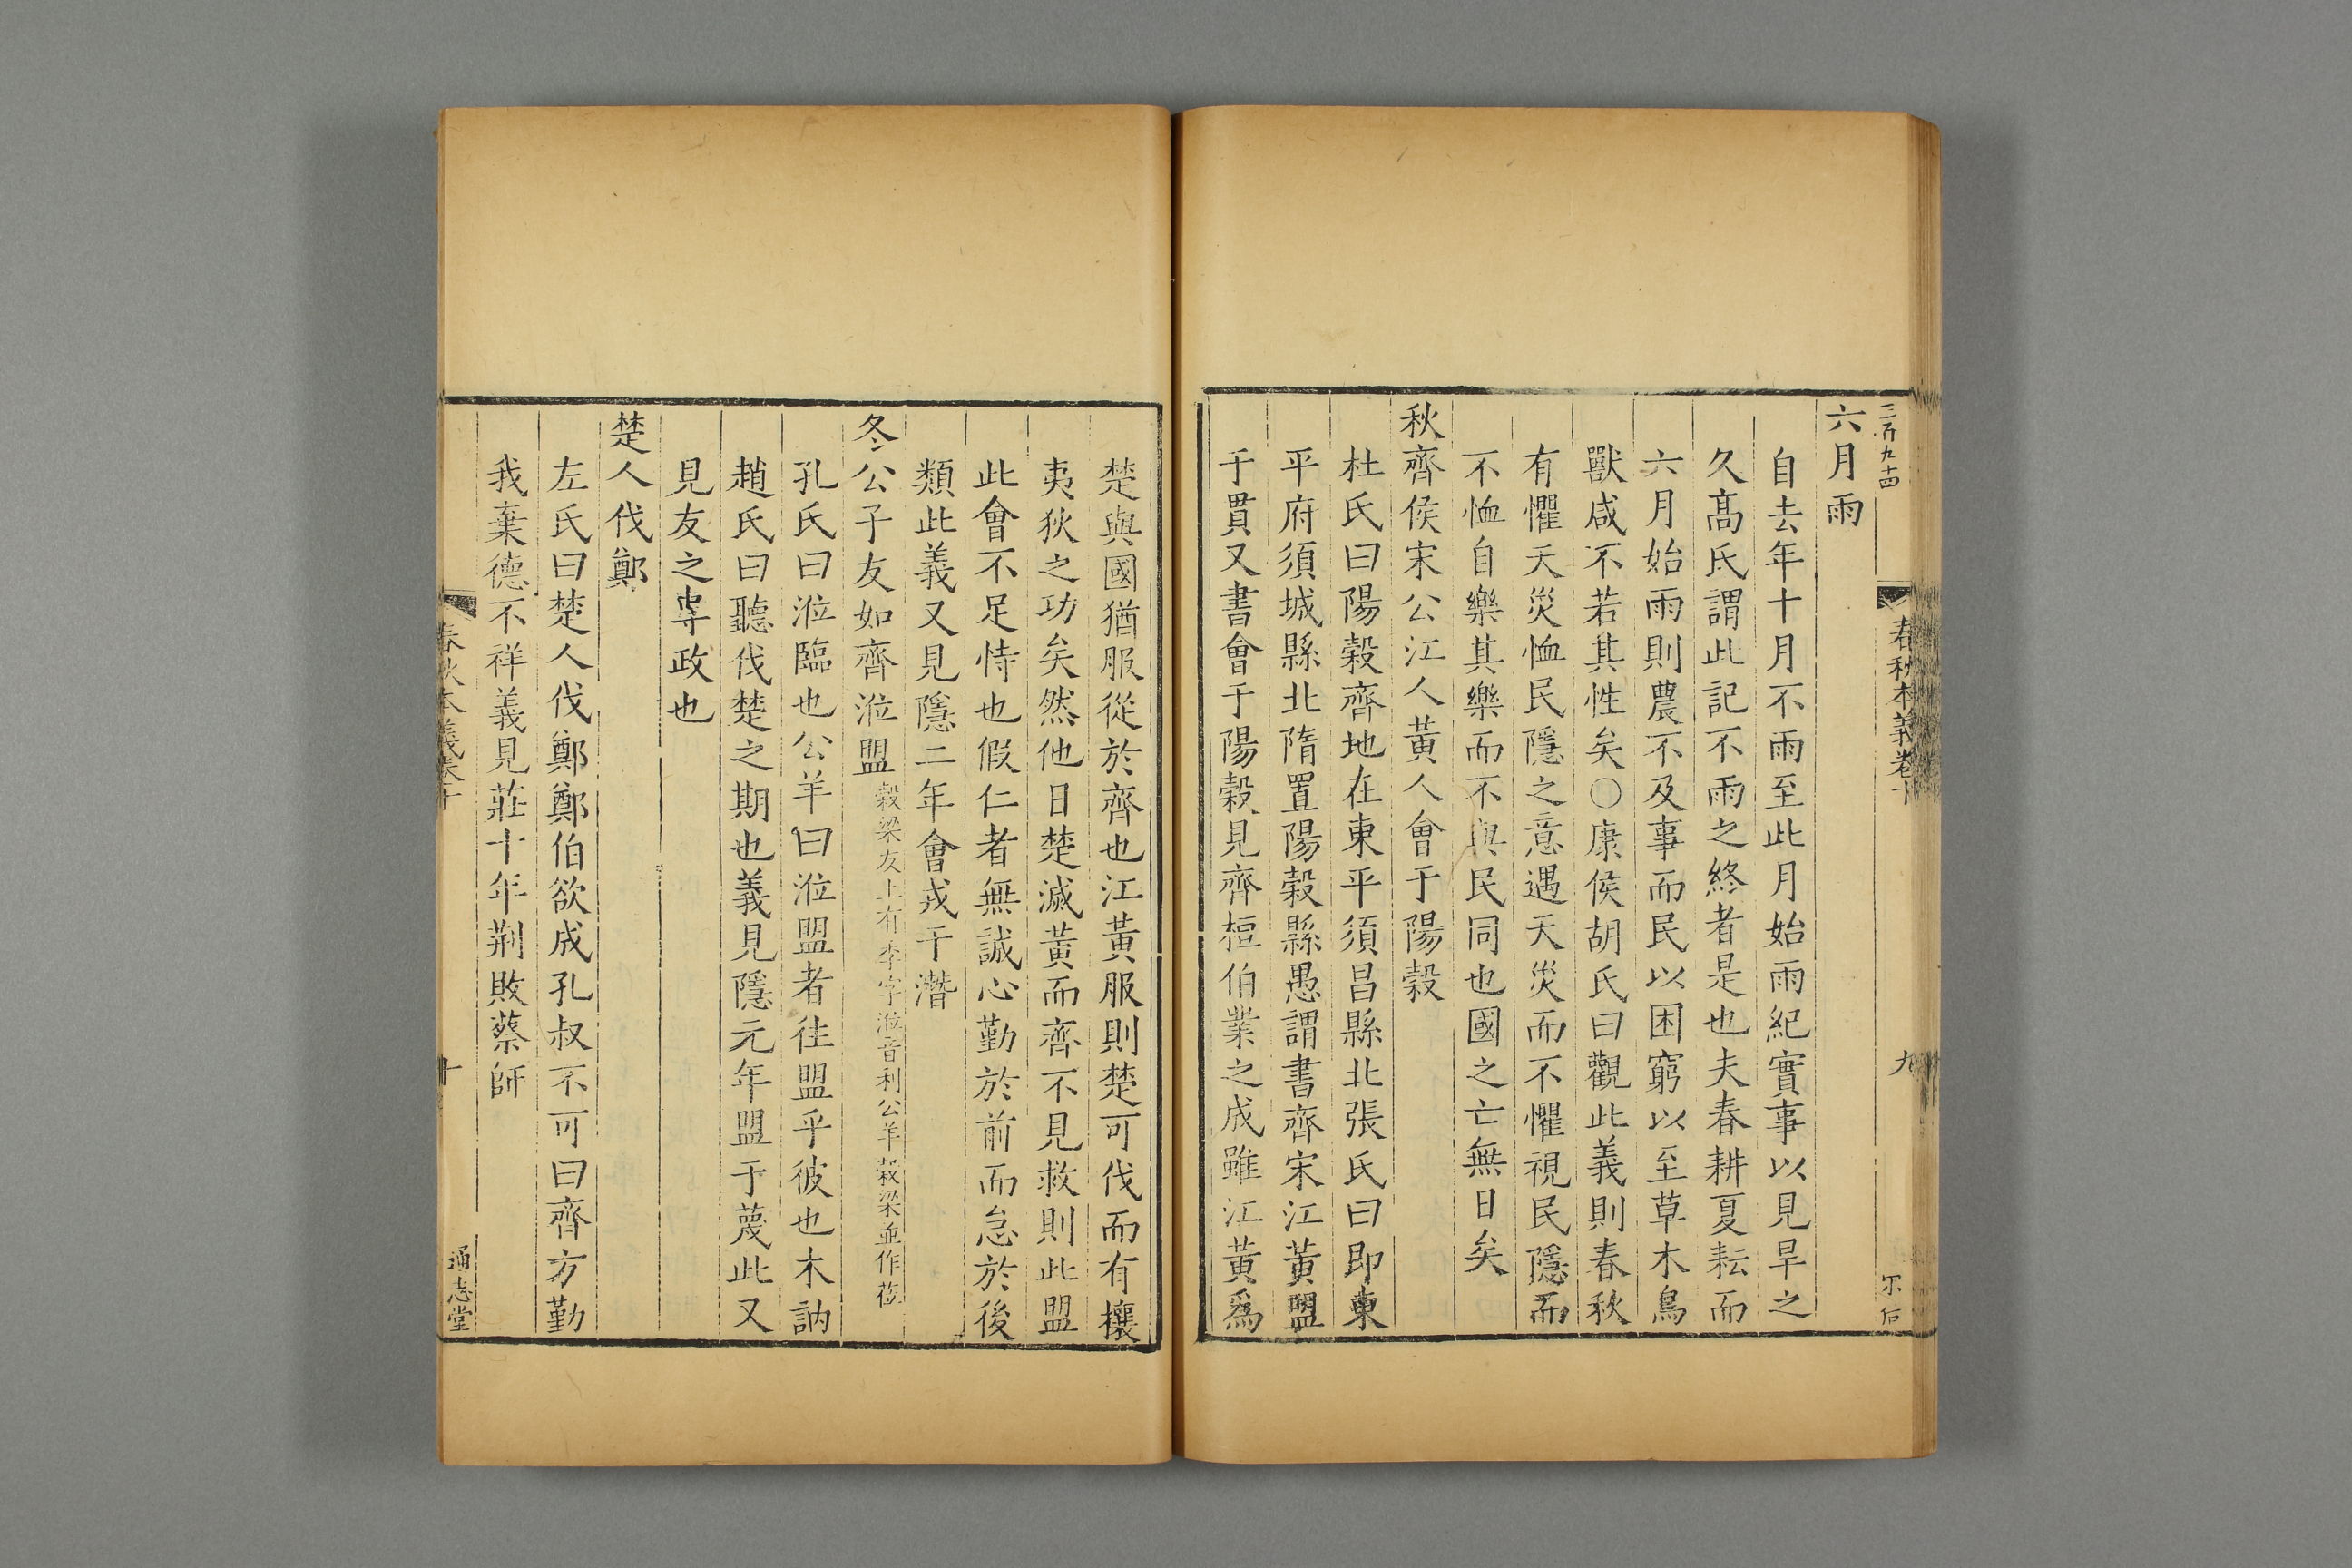 三百九十四
春秋本義卷十
九
六月雨
自去年十月不雨至此月始雨紀實事以見旱之
久高氏謂此記不雨之終者是也夫春耕夏耘而
六月始雨則農不及事而民以困窮以至草木鳥
獸咸不若其性矣○康侯胡氏曰觀此義則春秋
有懼天災恤民隱之意遇天災而不懼視民隱而
不恤自樂其樂而不與民同也國之亡無日矣
秋齊侯宋公江人黃人會于陽穀
杜氏曰陽穀齊地在東平須昌縣北張氏曰即東
平府須城縣北隋置陽穀縣愚謂書齊宋江黃盟
于貫又書會于陽穀見齊桓伯業之成雖江黃爲
楚與國猶服從於齊也江黃服則楚可伐而有攘
夷狄之功矣然他日楚滅黃而齊不見救則此盟
此會不足恃也假仁者無誠心勤於前而怠於後
類此義又見隱二年會戎于潛
冬公子友如齊涖盟穀梁友上有季字涖音利公羊穀梁並作莅
孔氏曰涖臨也公羊曰涖盟者往盟乎彼也木訥
趙氏曰聽伐楚之期也義見隱元年盟于蔑此又
見友之專政也
楚人伐鄭
左氏曰楚人伐鄭鄭伯欲成孔叔不可曰齊方勤
我棄德不祥義見莊十年荆敗蔡師
春秋本義卷十
十
通志堂